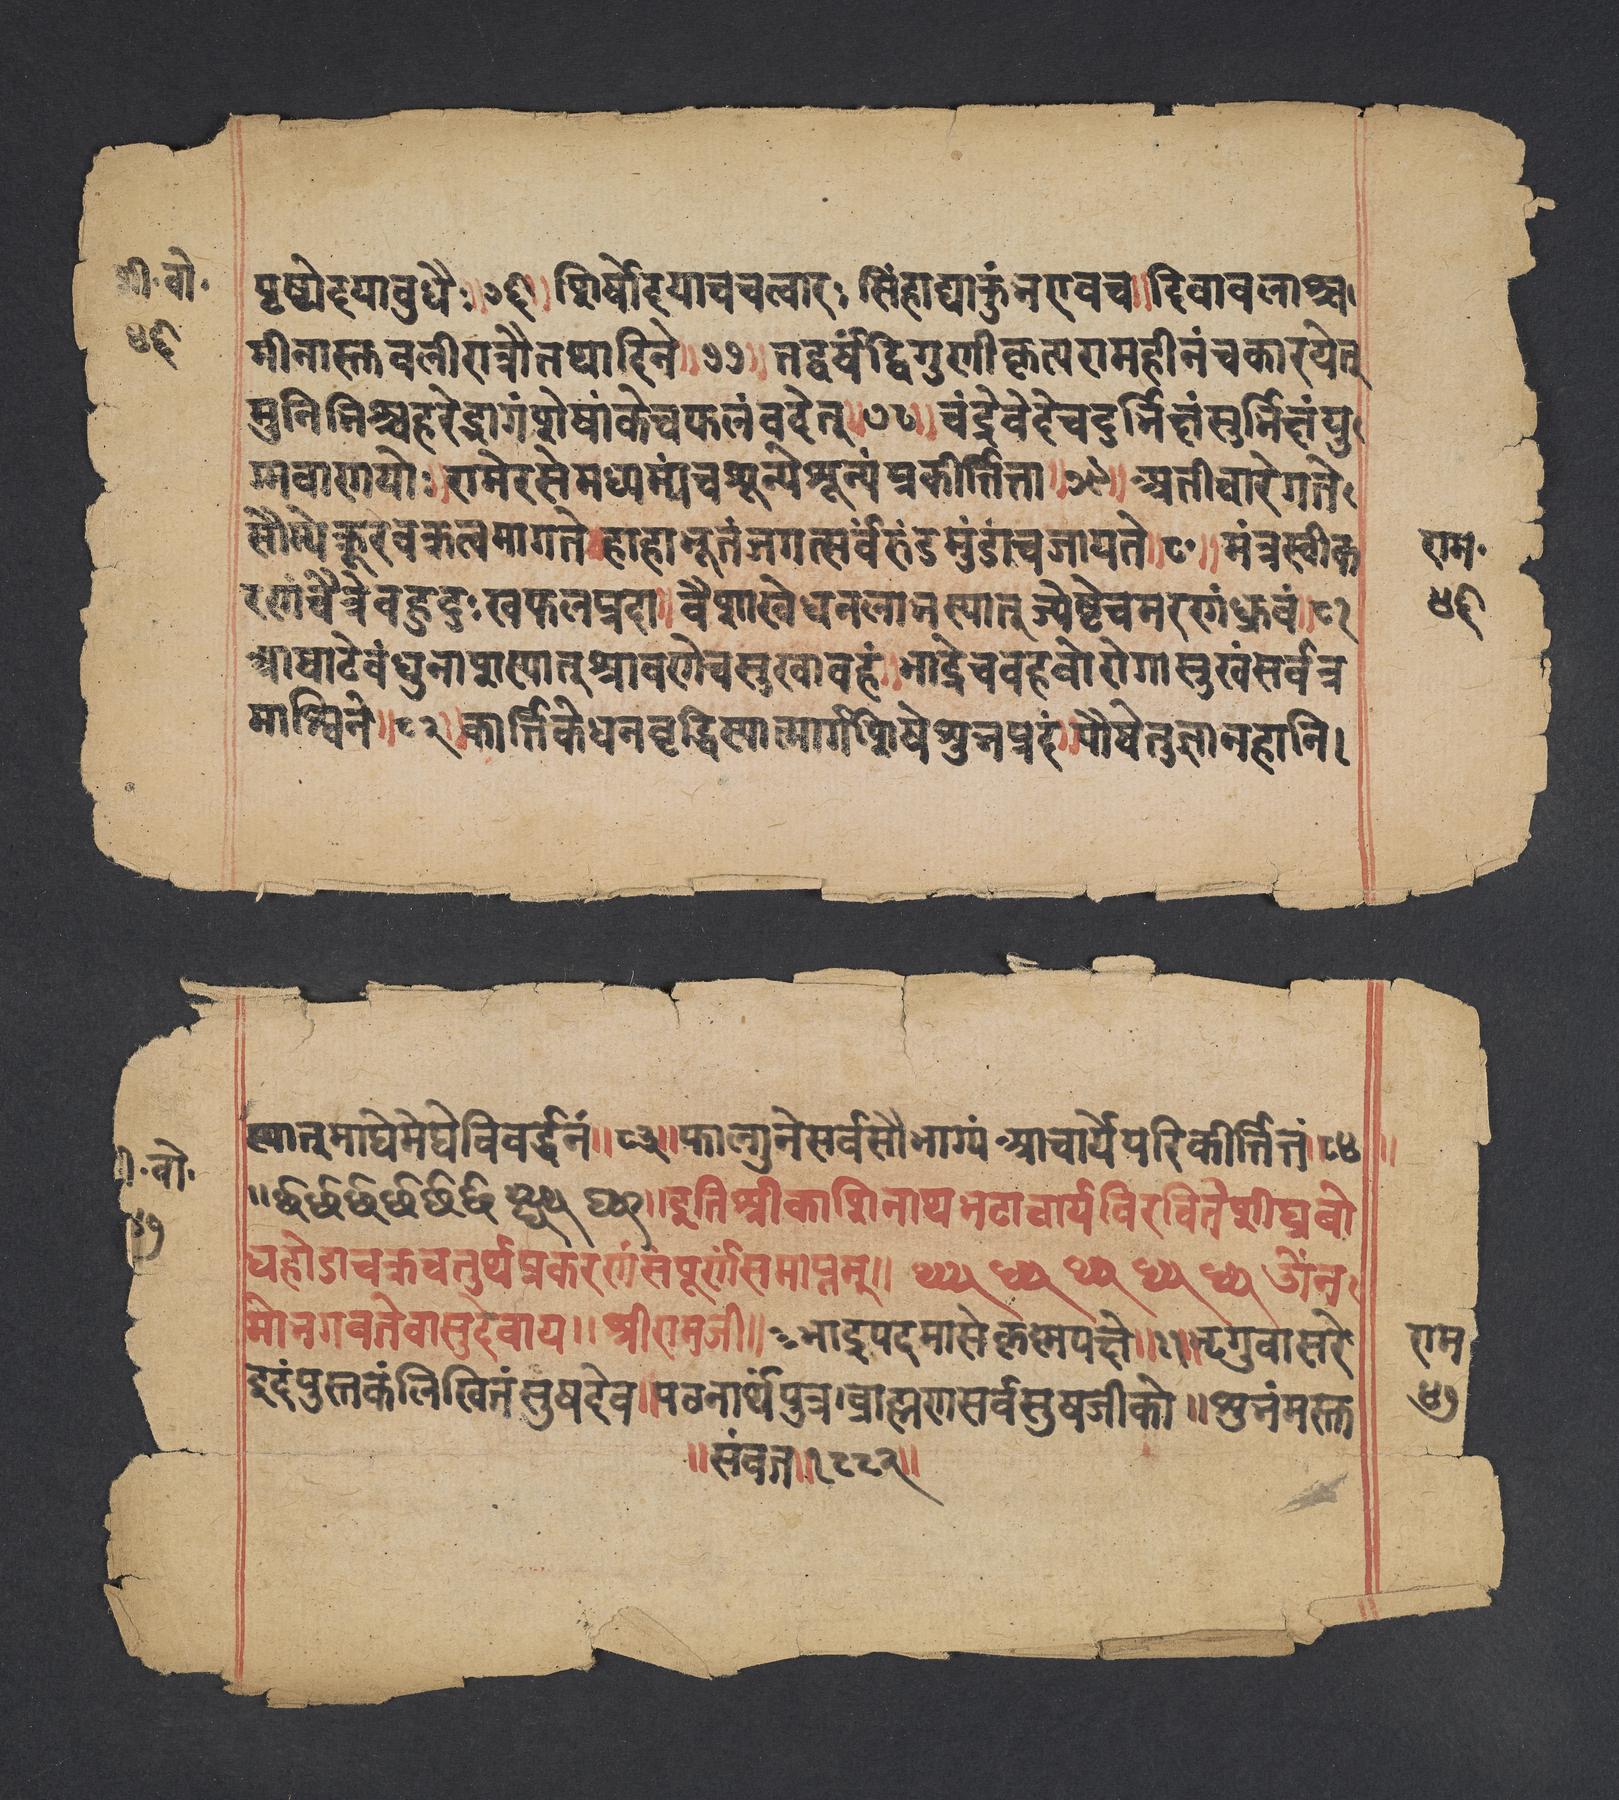 शी॰ बो॰
४६
पृष्ष्योदयाबुधैः॥७६॥शिर्षोदयाचचत्वारः सिंहाद्याकुंभएवच॥दिवाबलाश्च
मीनास्तबलीरात्रौतथादिने॥७७॥तद्वर्षंद्विगुणीकृत्यरामहीनंचकारयेत्
मुनिभिश्चहरेद्भागंशेषांकेचफलंवदेत्॥७८॥चंद्रेवेदेचदुर्भिक्षंसुर्भिक्षंयु
ग्मबाणयोः॥रामेरसेमध्यम्यंचश्रून्येश्रून्यंप्रकीर्त्तिता॥७९॥अतीचारेगते
सौम्येक्रूरवक्रत्वमागते॥हाहाभूतंजगत्सर्वंरुंडमुंडांचजायते॥८०॥मंत्रस्वीक
रणंचैत्रेबहुदुःखफलप्रदा॥वैशाखेधनलाभस्यात्ज्येष्टेचमरणंध्रुवं॥८१
आषाढेबंधुनाशस्यात्श्रावणेचसुखावहं॥भाद्रेचबहवोरोगासुखंसर्वत्र
माश्विने॥८२॥कार्त्तिकेधनवृद्धिस्यात्मार्गशिषेशुभप्रदं॥पौषेतुज्ञानहानि।
राम॰
४६
स्यात्माघेमेघेविवर्द्धनं॥८३॥फाल्गुनेसर्वसौभाग्यंआचार्येपरिकीर्त्तितं॥८४॥
शी॰ बो॰
४७
॥इतिश्रीकाशिनाथभटाचार्यविरचितेशीघ्रबो
धहोडाचक्रचतुर्थप्रकरणंसंपूर्णंसमाप्तम्॥ ॐन
मोभगवतेवासुदेवाय॥श्रीरामजी॥भाद्रपदमासेक्रह्मपक्षे॥११॥भृगुवासरे
इदंपुस्तकंलिखितंसुषदेव॥पठनार्थंपुत्र।ब्राह्मणसर्वसुषजीको॥शुभंमस्त
॥संवत॥१८८२॥
राम
४७